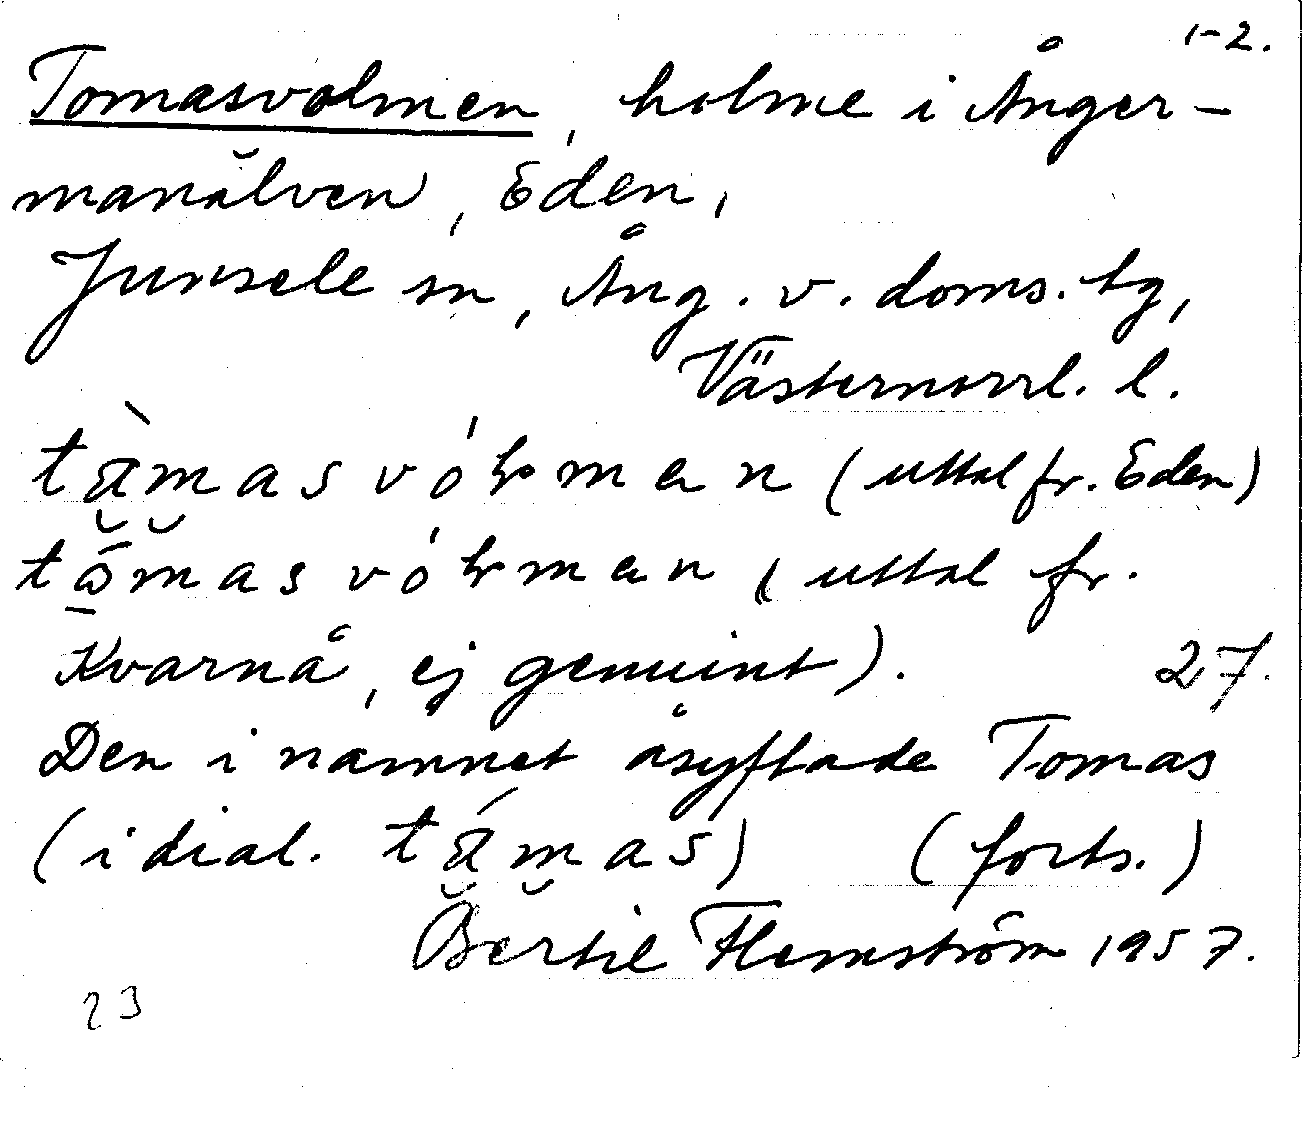 1-2.
Tomasvolmen, holme i Ånger-
manälven, Eden,
Junsele sn, Ång. v. doms. tg,
Västernorrl. l.
(uttal fr. Eden)
(uttal fr.
Kvarnå, ej genuint). 27.
Den i namnet åsyftade Tomas
(i dial. támas) (forts.)
Bertil Flemström 1957.
23